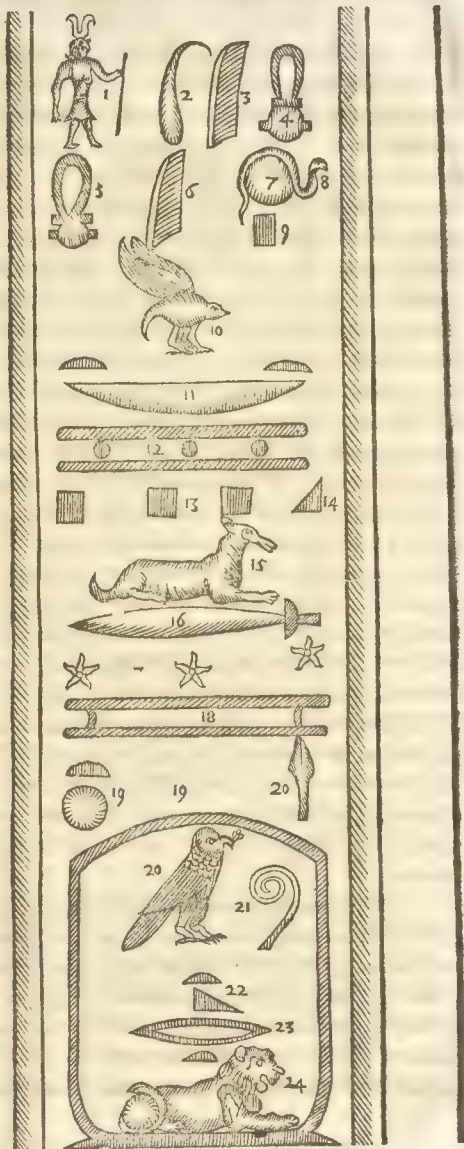 1 2 3 4
5 6 7 8
9
10
11
12
13 14
15
16
18
19 19 20
20 21
22
23
24